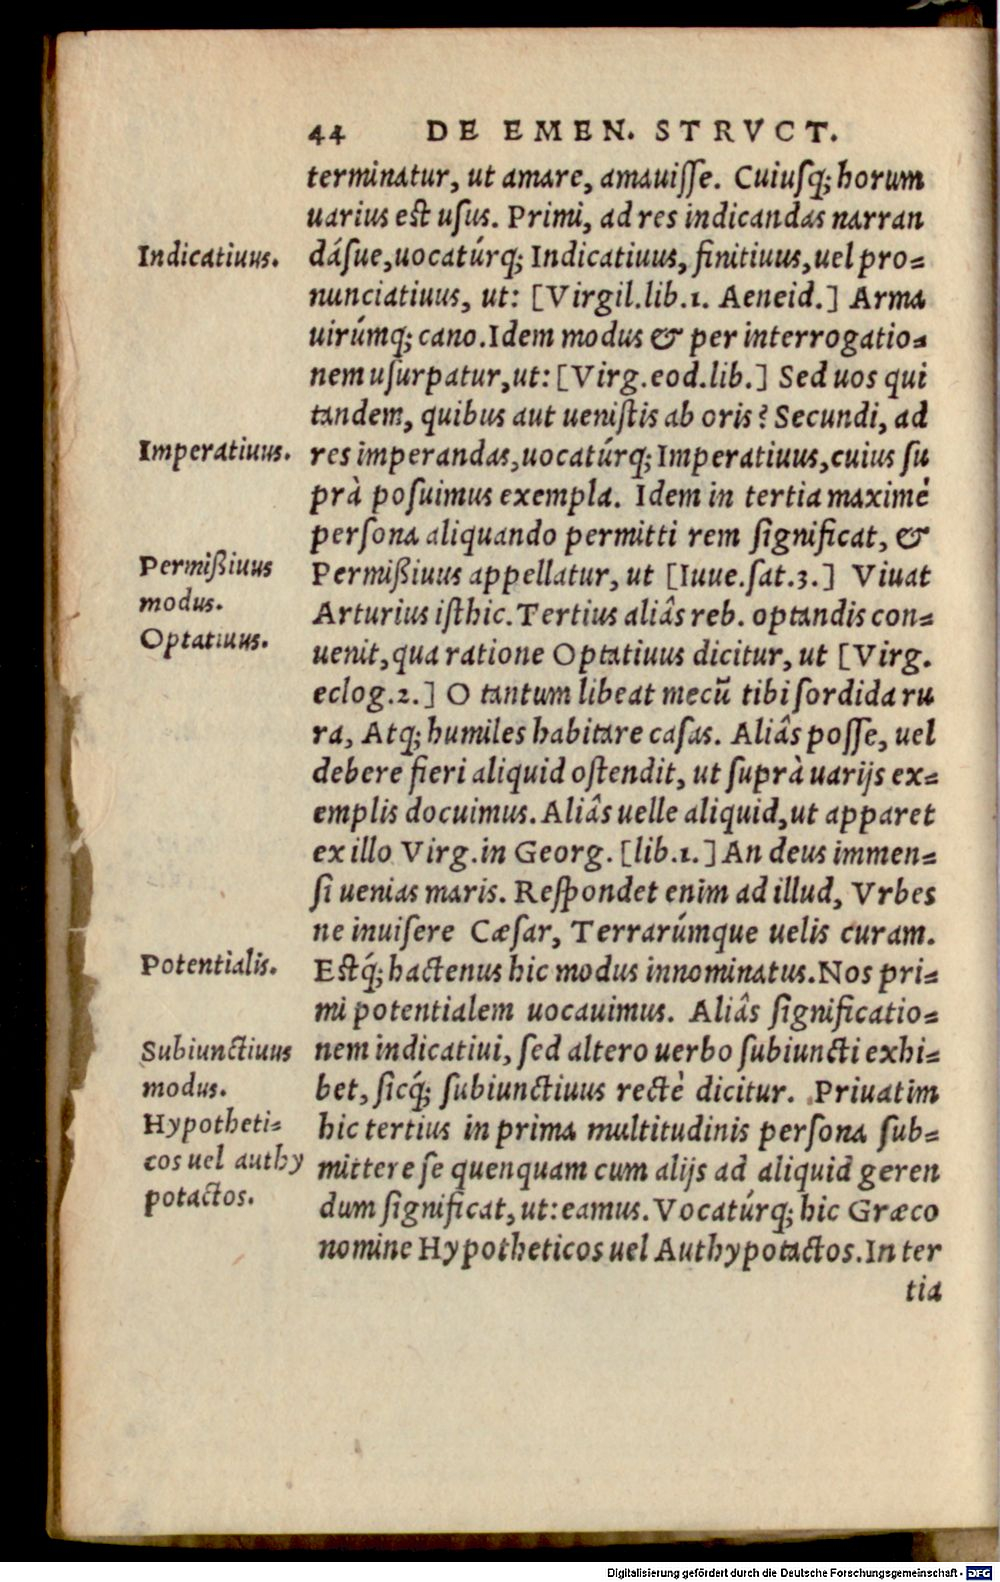 44 DE EMEN. STRVCT.
terminatur, ut amare, amauisse. Cuiusq; horum
uarius est usus. Primi, ad res indicandas narran
Indicatiuus.
dásue, uocatúrq; Indicatiuus, finitiuus, uel pro=
nunciatiuus, ut: [Virgil.lib.1. Aeneid.] Arma
uirúmq; cano. Idem modus & per interrogatio=
nem usurpatur, ut: [Virg.eod.lib.] Sed uos qui
tandem, quibus aut uenistis ab oris? Secundi, ad
Imperatiuus.
res imperandas, uocatúrq; Imperatiuus, cuius su
prà posuimus exempla. Idem in tertia maximè
persona aliquando permitti rem significat, &
Permißiuus
modus.
Permißiuus appellatur, ut [Iuue.sat.3.] Viuat
Arturius isthic. Tertius aliâs reb. optandis con=
Optatiuus.
uenit, qua ratione Optatiuus dicitur, ut [Virg.
eclog.2.] O tantum libeat mecũ tibi sordida ru
ra, Atq; humiles habitare casas. Aliâs posse, uel
debere fieri aliquid ostendit, ut suprà uarijs ex=
emplis docuimus. Aliâs uelle aliquid, ut apparet
ex illo Virg. in Georg. [lib.1.] An deus immen=
si uenias maris. Respondet enim ad illud, Vrbes
ne inuisere Cæsar, Terrarúmque uelis curam.
Potentialis.
Estq́; hactenus hic modus innominatus. Nos pri=
mi potentialem uocauimus. Aliâs significatio=
Subiunctiuus
modus.
nem indicatiui, sed altero uerbo subiuncti exhi=
bet, sicq́; subiunctiuus rectè dicitur. Priuatim
Hypotheti=
cos uel authy
potactos.
hic tertius in prima multitudinis persona sub=
mittere se quenquam cum alijs ad aliquid geren
dum significat, ut: eamus. Vocatúrq; hic Græco
nomine Hypotheticos uel Authypotactos. In ter
tia
Digitalisierung gefördert durch die Deutsche Forschungsgemeinschaft - DFG